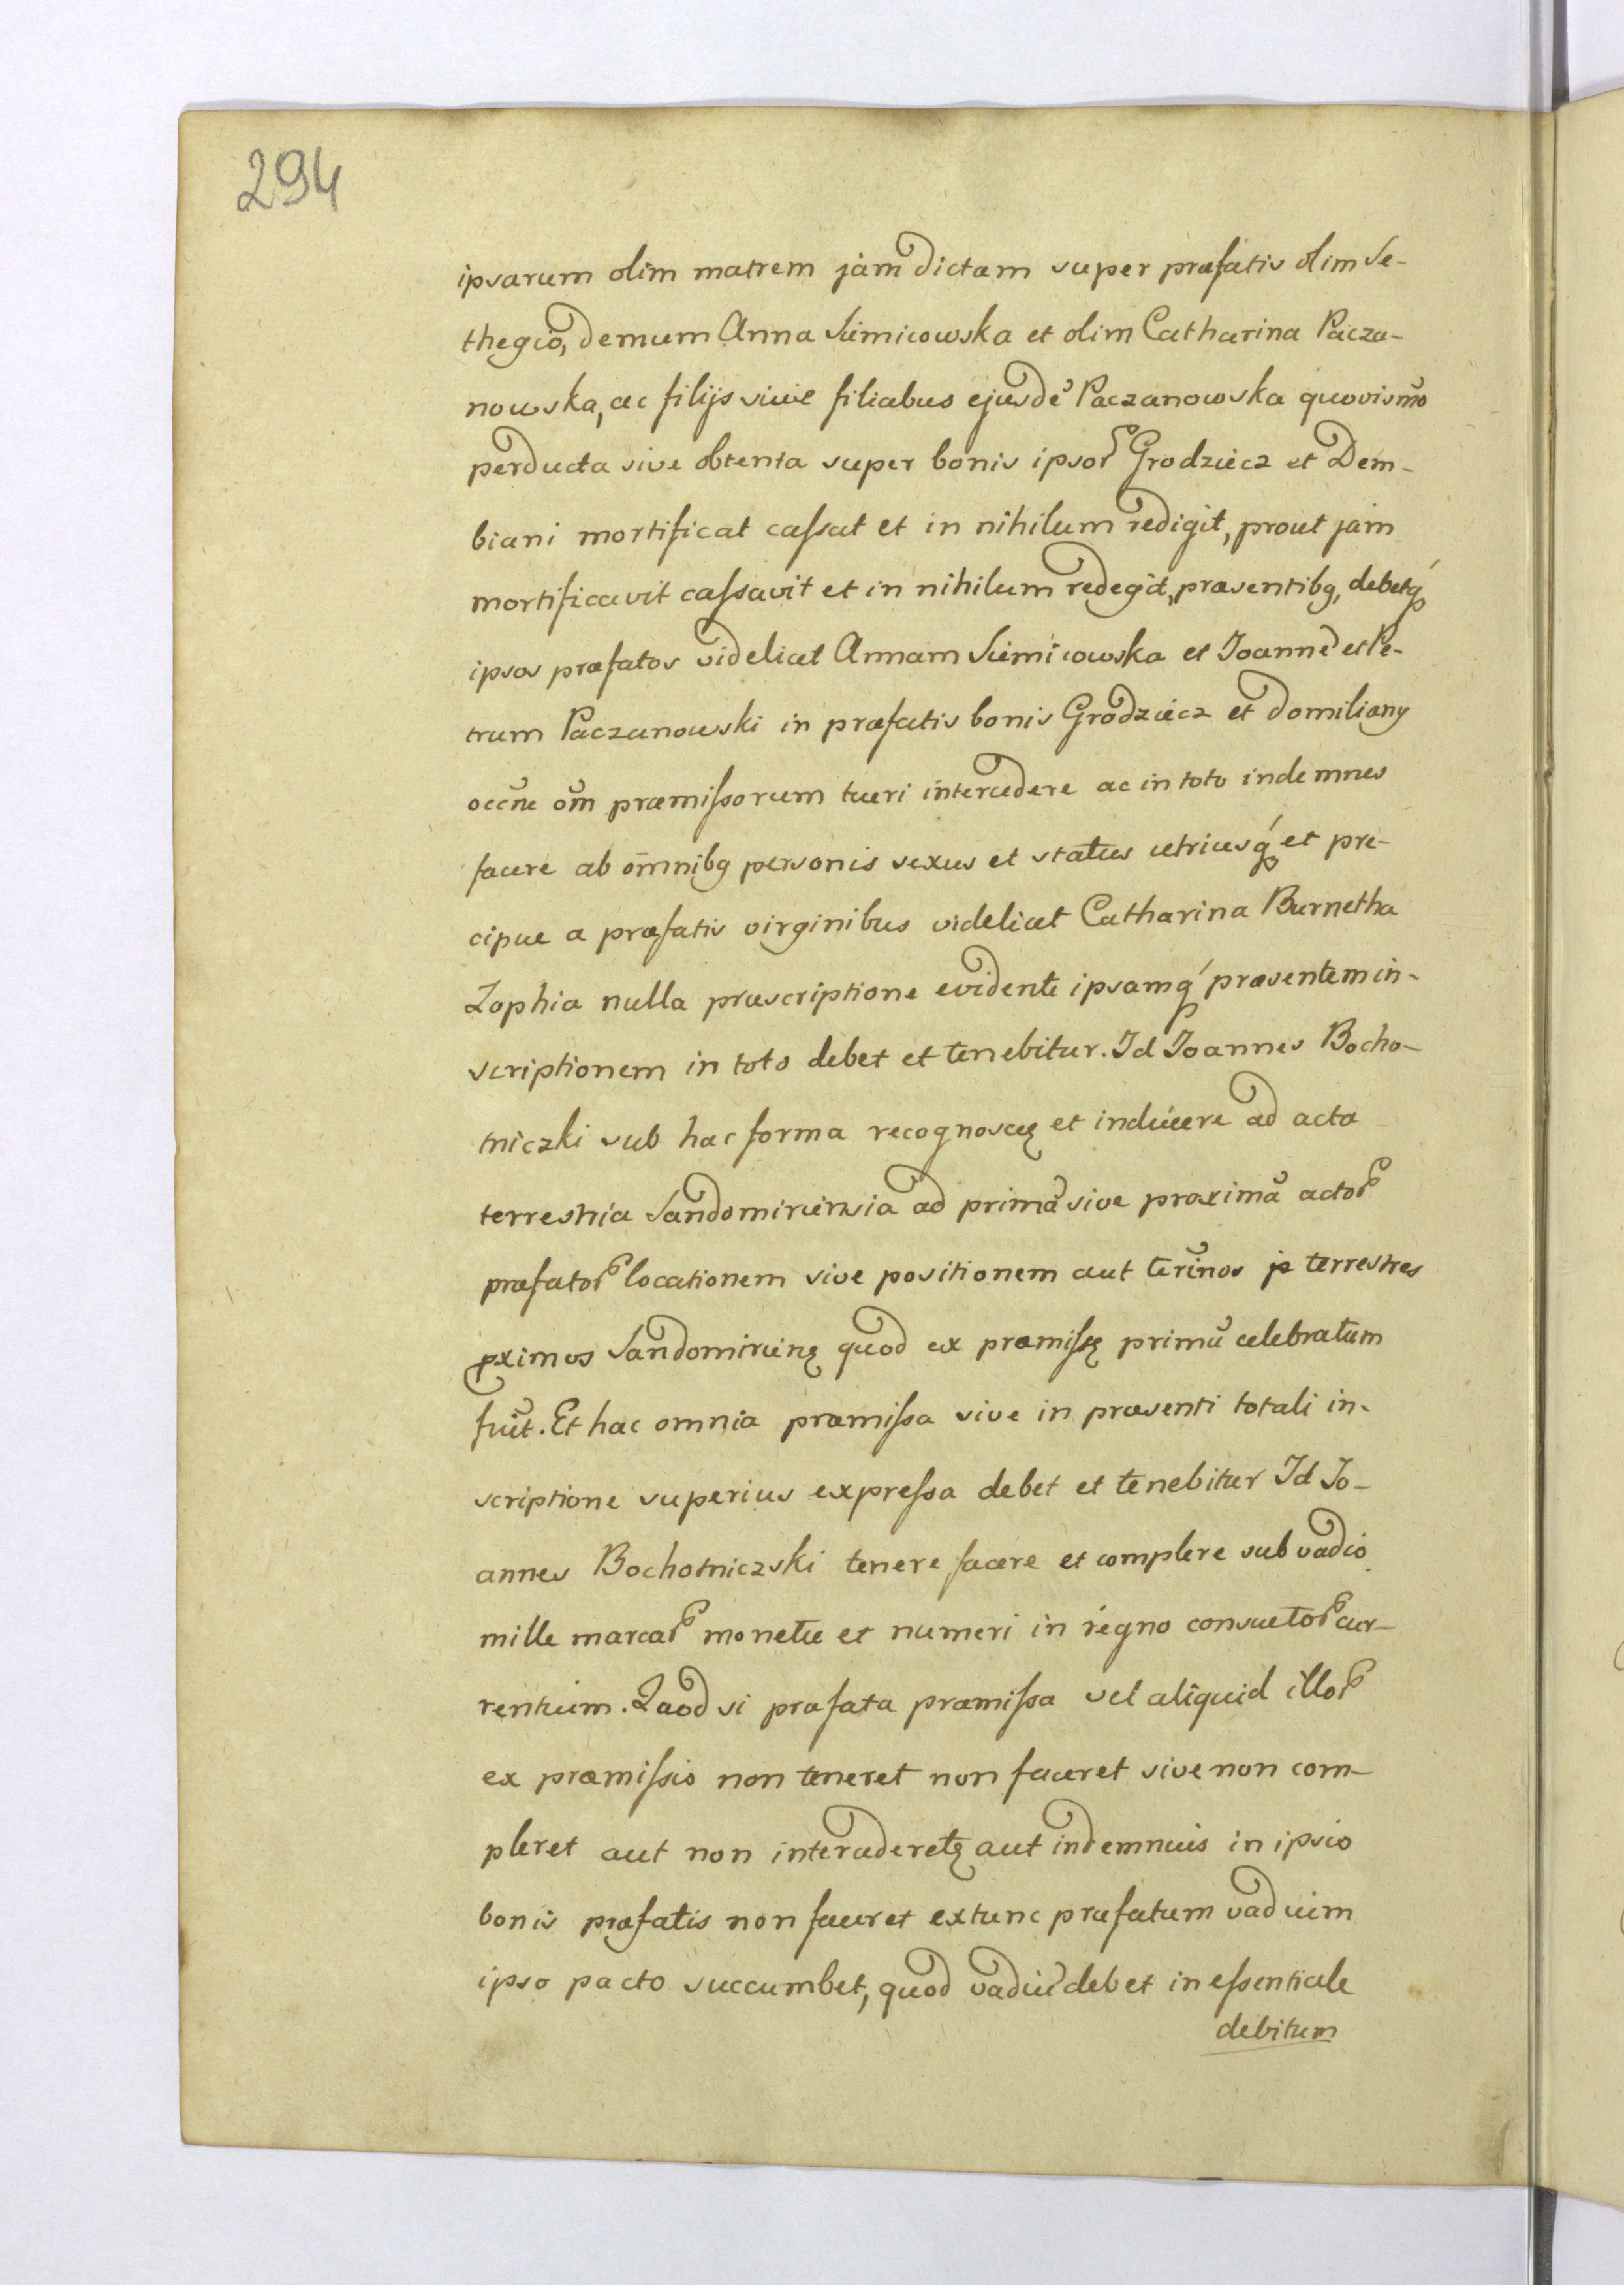 294
ipsarum olim matrem jam dictam super præfatis olim Se-
thegio, demum Anna Siemicowska et olim Catharina Pacza-
nowska, ac filijs sive filiabus ejusdē Paczanowska quovismō
perducta sive obtenta super bonis ipsoꝝ Grodziecz et Dem-
biani mortificat cassat et in nihilum redigit, prout jam
mortificavit cassavit et in nihilum redegit, præsentibꝫ, debetqꝫ
ipsos præfatos videlicet Annam Siemicowska et Joannē et Pe-
trum Paczanowski in præfatis bonis Grodziecz et Domiliany
occne om̄ præmissorum tueri intercedere ac in toto indemnes
facere ab om̄nibꝫ personis sexus et status utriusqꝫ et pre-
cipue a præfatis virginibus videlicet Catharina Burnetha
Zophia nulla præscriptione evidente ipsamqꝫ præsentem in-
scriptionem in toto debet et tenebitur. Id Joannes Bocho-
tniczki sub hac forma recognoscę et inducere ad acta
terrestria Sandomiriensia ad primā sive proximā actoꝝ
præfatoꝝ locationem sive positionem aut terinos p terrestres
pximos Sandomirienę quod ex præmissę primū celebratum
fuīt. Et hac omnia præmissa sive in præsenti totali in-
scriptione superius expressa debet et tenebitur Id Jo-
annes Bochotniczski tenere facere et complere sub vadio
mille marcaꝝ monetæ et numeri in regno consuetoꝝ cur-
rentium. Quod si præfata præmissa vel aliquid illoꝝ
ex præmissis non teneret non faceret sive non com-
pleret aut non intercederetę aut indemnuis in ipsis
bonis præfatis non faceret extunc præfatum vadium
ipso pacto succumbet, quod vadiū debet in essentiale
debitum